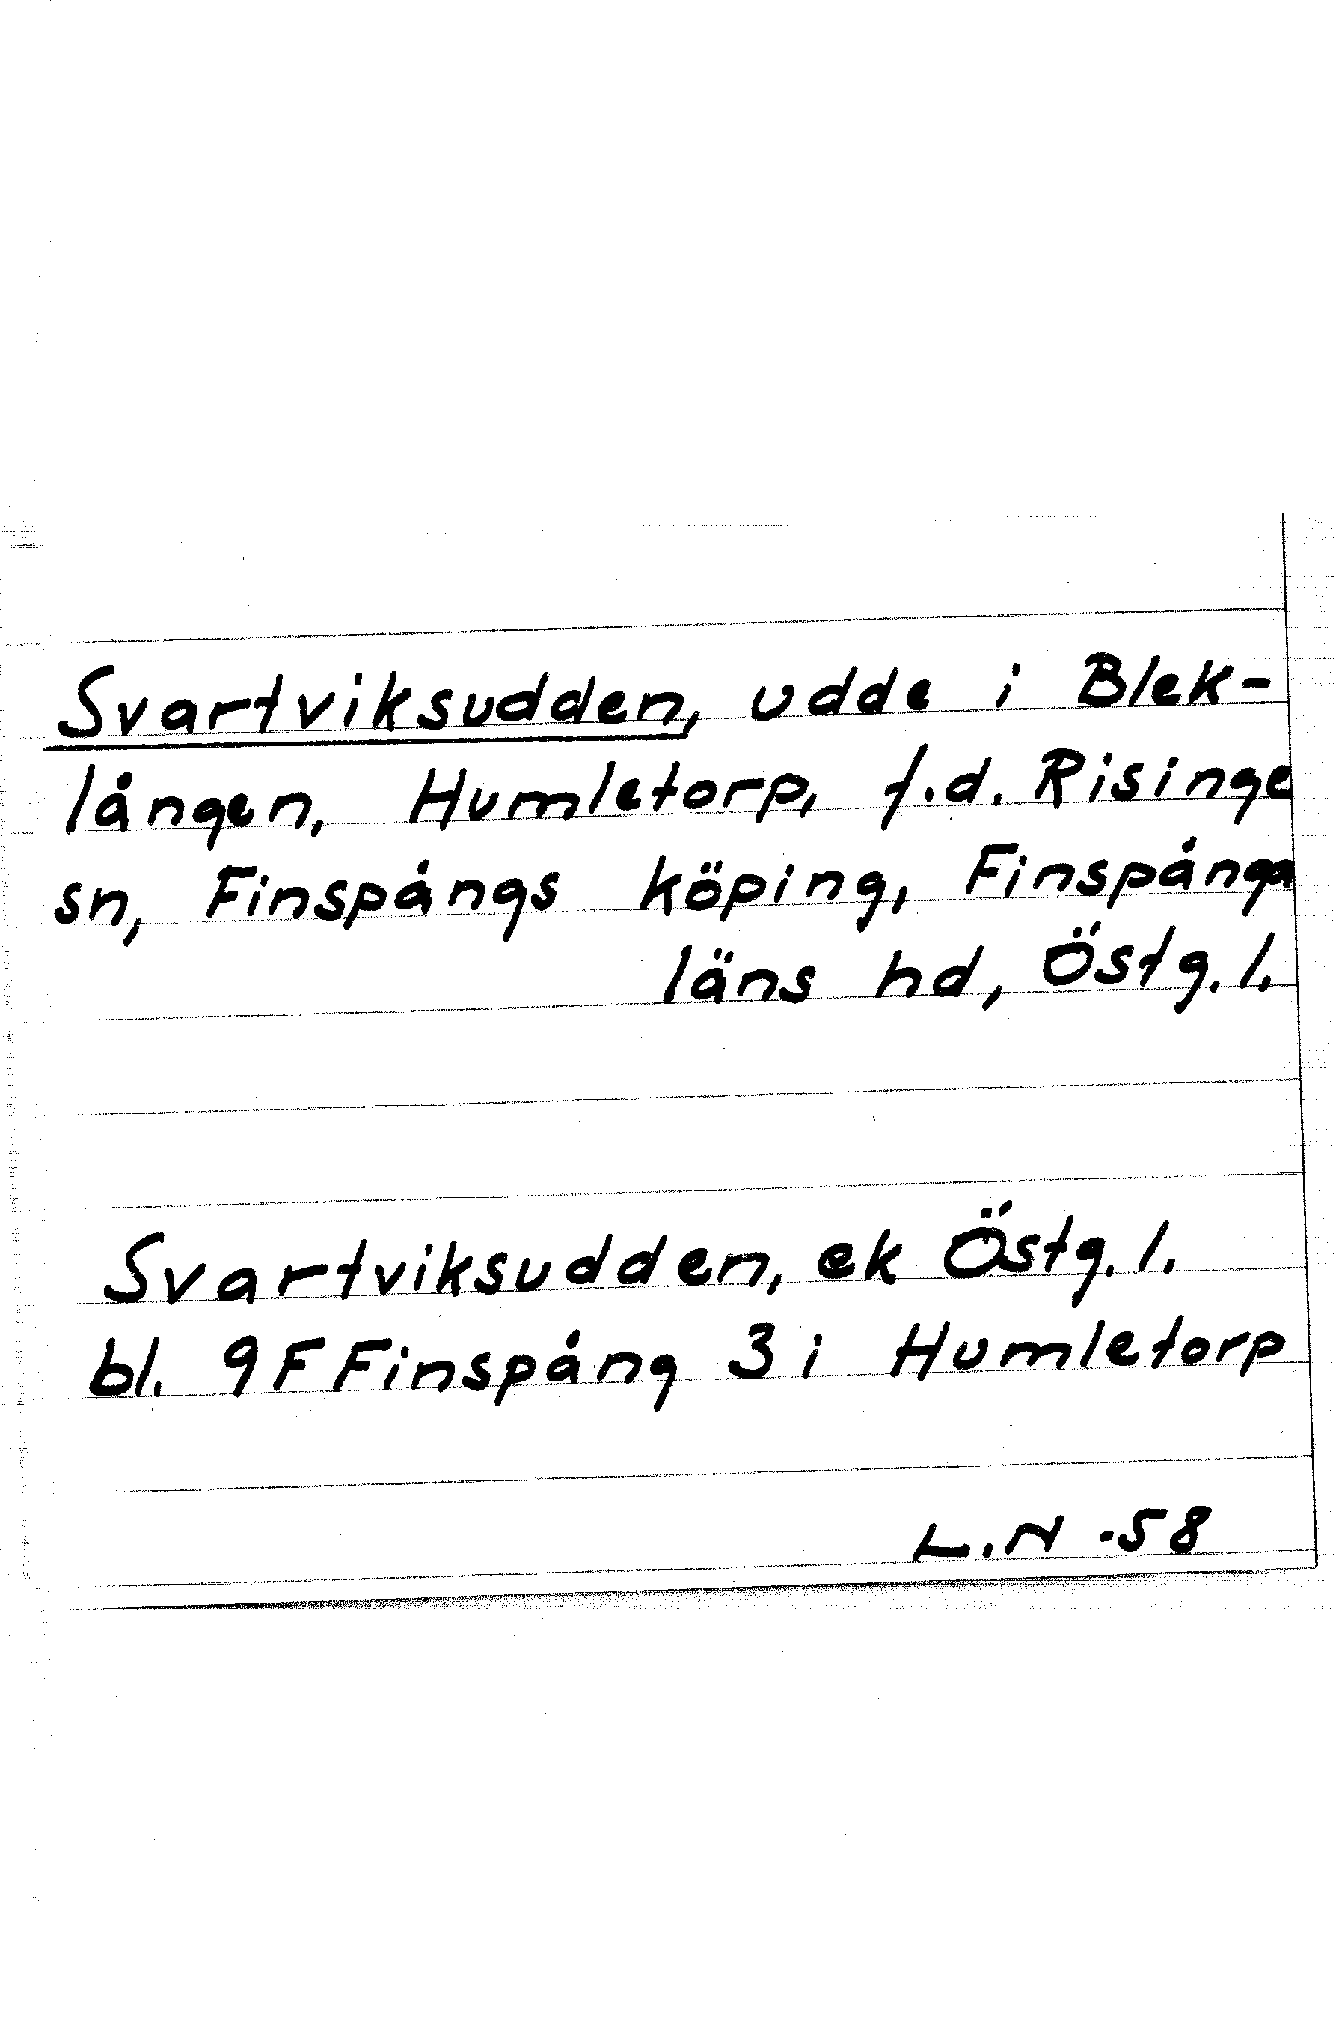 Svartviksudden, udde i Blek-
lången, Humletorp, f.d. Risinge
sn, Finspångs köping, Finspånga
läns hd, Östg. l.
Svartviksudden, ek Östg. l.
bl. 9F Finspång 3 i Humletorp
L.N -58